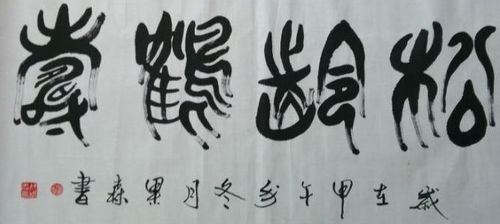 松齡鶴壽
歲在甲午冬月果森書